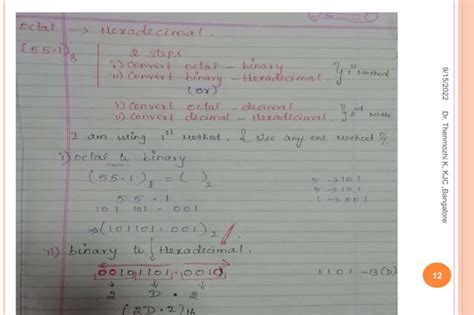 octal → Hexadecimal.
(55.1)8
2 steps
i) Convert octal - binary
ii) Convert binary - Hexadecimal. } 1st Method
(or)
i) Convert octal - decimal
ii) Convert decimal - Hexadecimal. } 2nd Metho
I am using 1st Method. { Use any one Method }
i) octal to binary
(55.1)8 = ( )2
5 5 . 1
101 101 . 001
→ (101101.001)2
5 → 101
5 → 101
1 → 001
ii) binary to Hexadecimal.
0010 1101 . 0010
↓ ↓ ↓
2 D . 2
(2D.2)16
1101 - 13(D)
9/15/2022 Dr. Thenmozhi K, KJC ,Bangalore
12